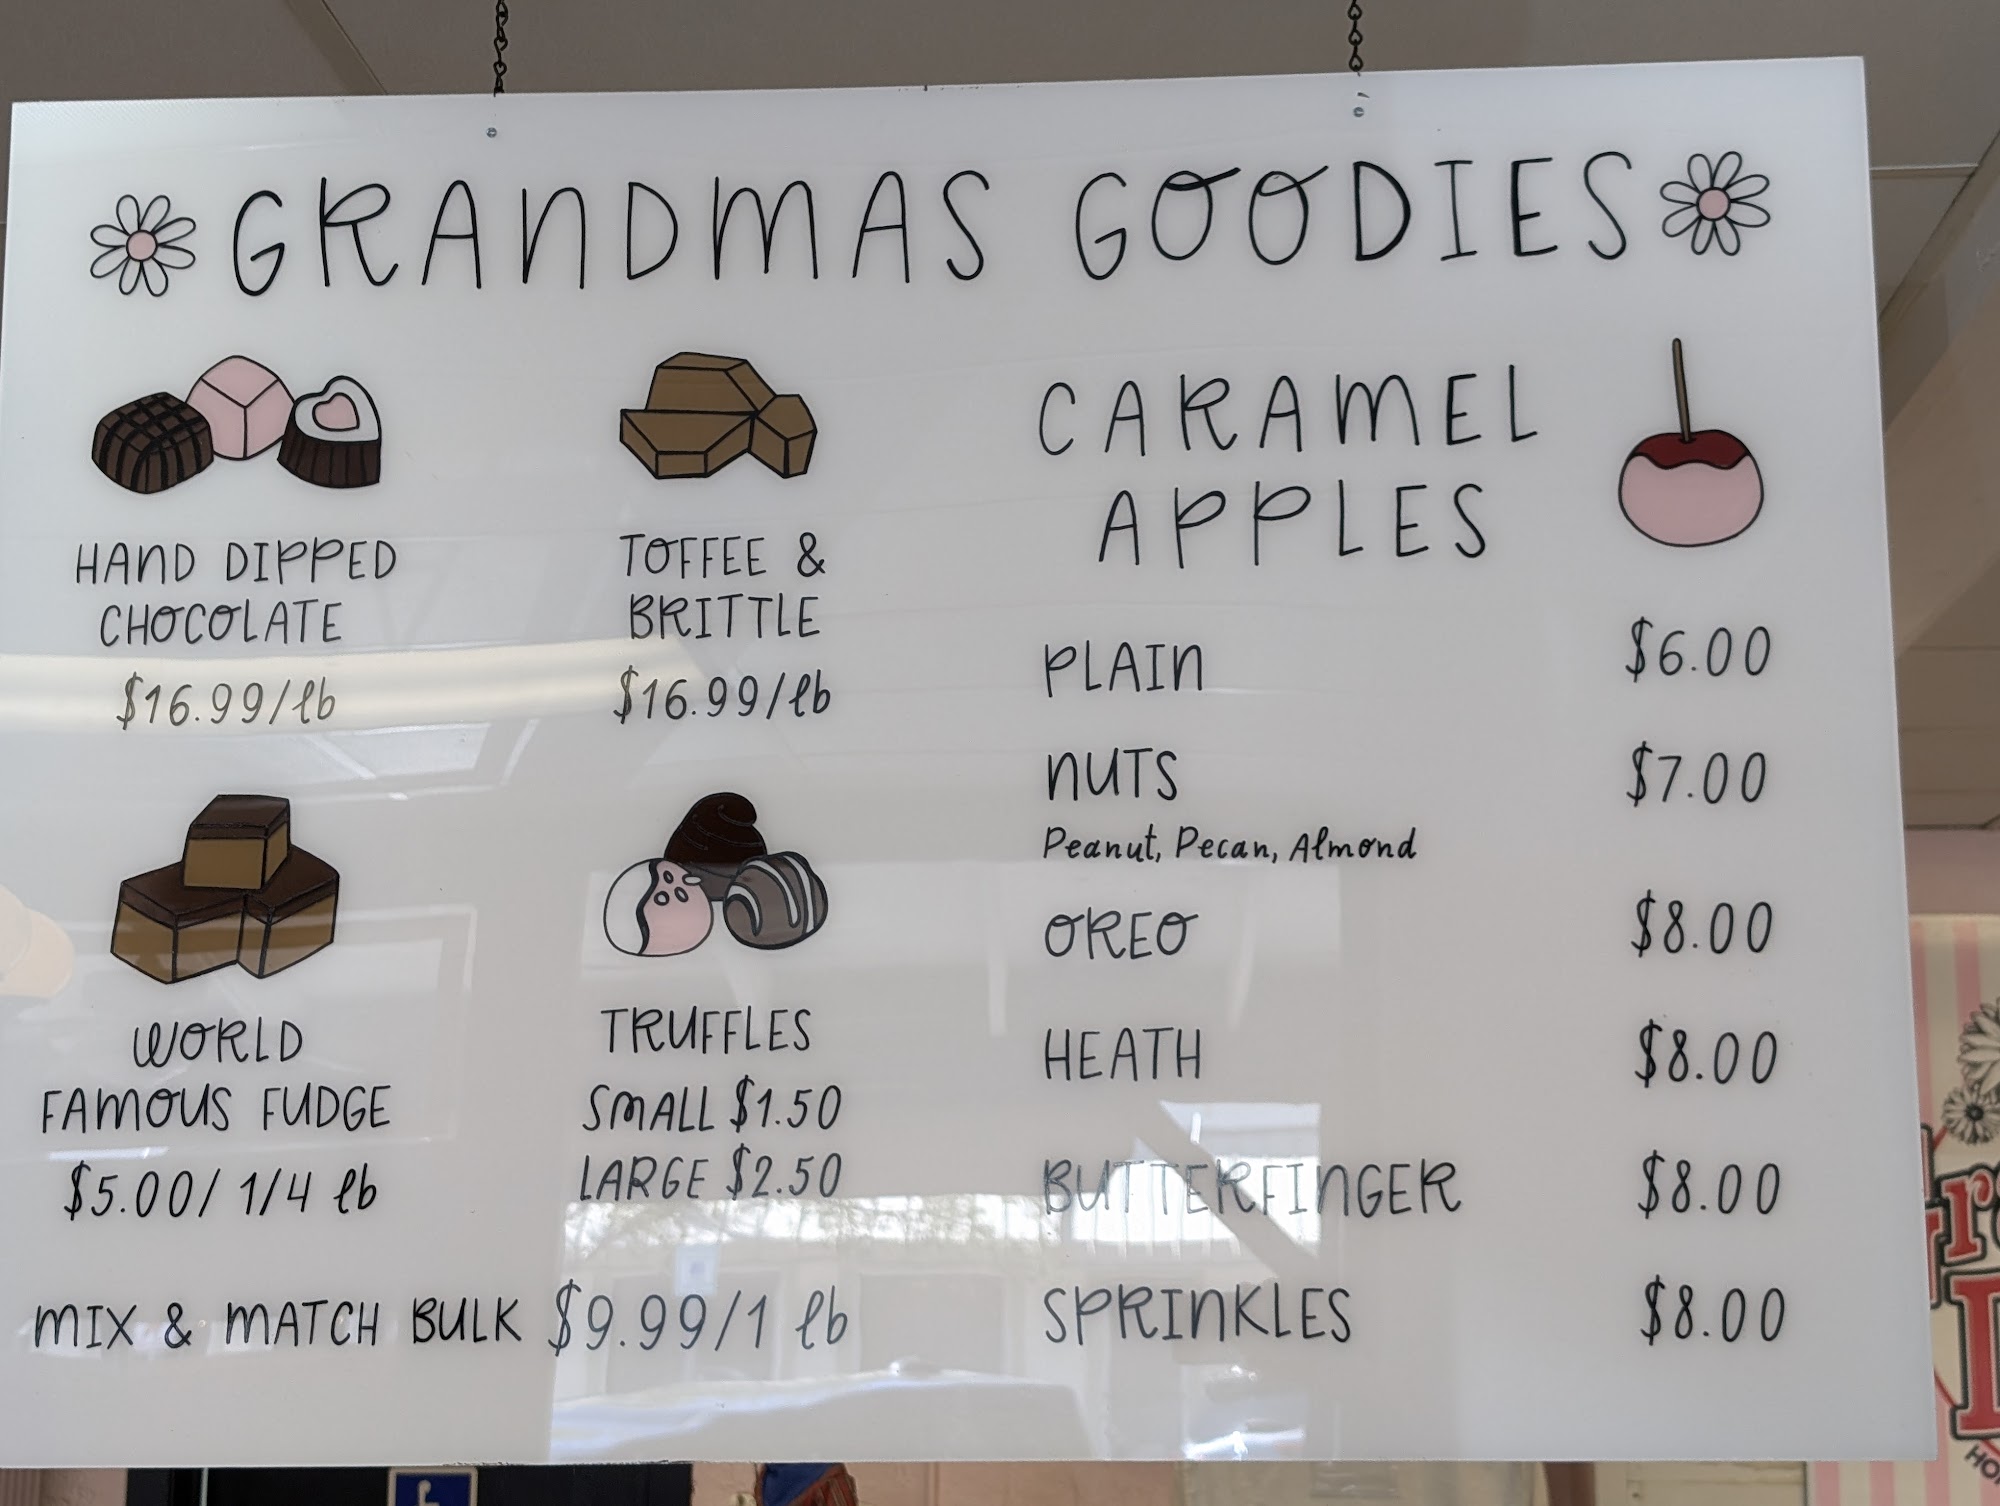 GRANDMAS GOODIES
HAND DIPPED
CHOCOLATE
$16.99/lb
TOFFEE &
BRITTLE
$16.99/lb
WORLD
FAMOUS FUDGE
$5.00/ 1/4 lb
TRUFFLES
SMALL $1.50
LARGE $2.50
MIX & MATCH BULK $9.99/1 lb
CARAMEL
APPLES
PLAIN $6.00
NUTS $7.00
Peanut, Pecan, Almond
OREO $8.00
HEATH $8.00
BUTTERFINGER $8.00
SPRINKLES $8.00